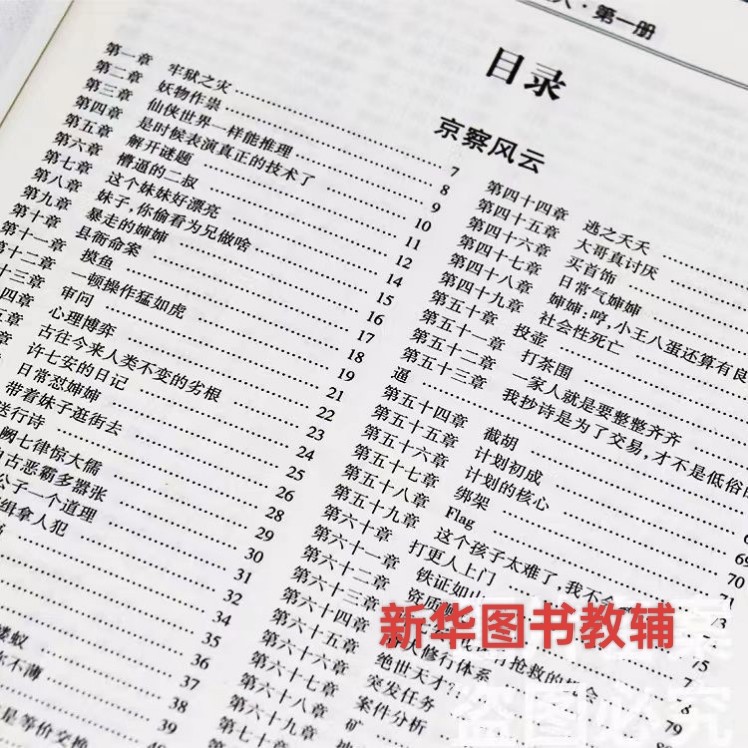 人·第一册
目录
京察风云
第一章 牢狱之灾
第二章 妖物作祟 7
第三章 仙侠世界一样能推理 8
第四章 是时候表演真正的技术了 9
第五章 解开谜题 10
第六章 懵逼的二叔 11
第七章 这个妹妹好漂亮 12
第八章 妹子,你偷看为兄做啥 14
第九章 暴走的婶婶 15
第十章 县衙命案 16
第十一章 摸鱼 17
第十二章 一顿操作猛如虎 18
十三章 审问 19
四章 心理博弈 21
五章 古往今来人类不变的劣根 22
章 许七安的日记 23
日常怼婶婶 24
带着妹子逛街去 25
送行诗 26
阙七律惊大儒 28
自古恶霸多嚣张 29
公子一个道理 30
缉拿人犯 31
32
34
35
蝼蚁 36
不薄 37
38
是等价交换 39
第四十四章 逃之夭夭
第四十五章 大哥真讨厌
第四十六章 买首饰
第四十七章 日常气婶婶
第四十八章 婶婶:哼,小王八蛋还算有良
第四十九章 社会性死亡
第五十章 投壶
第五十一章 打茶围
第五十二章 一家人就是要整整齐齐
第五十三章 我抄诗是为了交易,才不是低俗
逼
第五十四章 截胡
第五十五章 计划初成
第五十六章 计划的核心
第五十七章 绑架
第五十八章 Flag
第五十九章 这个孩子太难了,我不会
第六十章 打更人上门
第六十一章 铁证如山
第六十二章 资质
第六十三章
第六十四章 人修行体系
第六十五章 绝世天才?
第六十六章 突发任务
第六十七章 案件分析
第六十八章 矿
第六十九章
第七十章
69
70
71
73
75
79
新华图书教辅
盗图必究